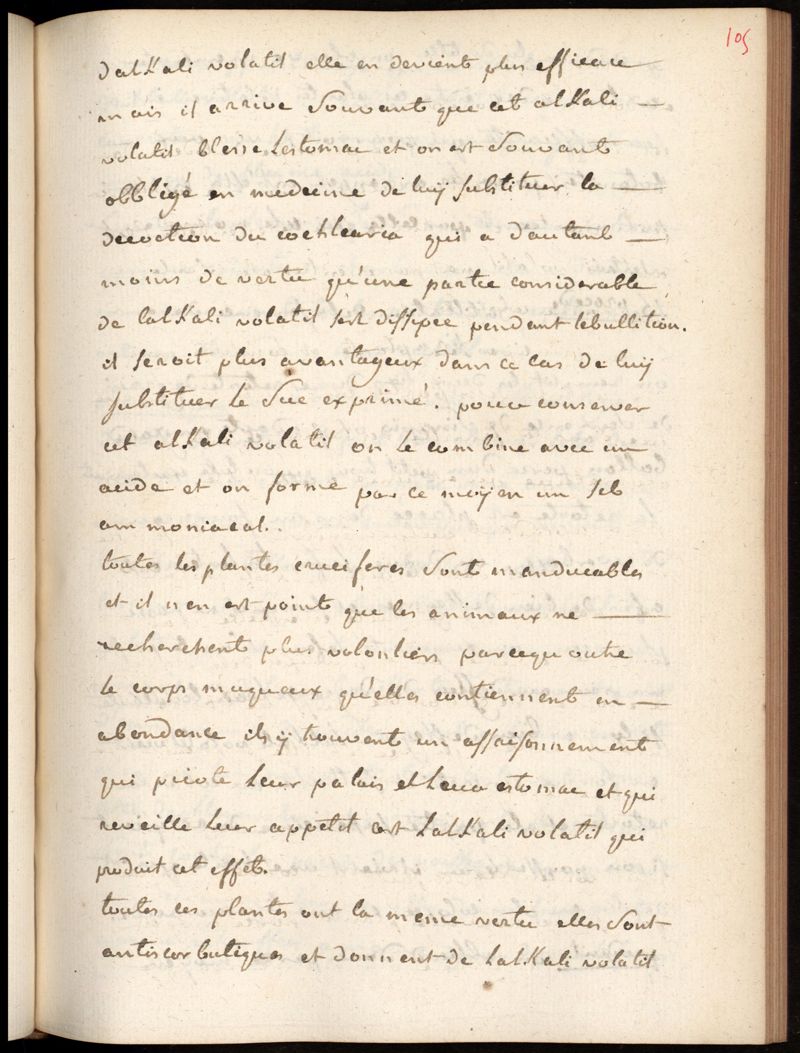 105
d'alkali volatil elle en devient plus efficace
mais il arrive souvant que cet alkali —
volatil blesse lestomac et on est souvant
obbligé en medecine de luÿ substituer la —
decoction du cochlearia qui a dautant —
moins de vertu qu'une partie considerable
de lalkali volatil sest dissipée pendant lebullition.
il seroit plus avantageux dans ce cas de luÿ
substituer le suc exprimé. pour conserver
cet alkali volatil on le combine avec un
acide et on forme par ce moÿen un sel
ammoniacal.
toutes les plantes cruciferes sont manducables
et il n'en est point que les animaux ne —
recherchent plus volontiers parcequ outre
le corps muqueux qu'elles contiennent en —
abondance ils ÿ trouvent un assaisonnement
qui picote leur palais et leur estomac et qui
reveille leur appetit est lalkali volatil qui
produit cet effet.
toutes ces plantes ont la meme vertu elles sont
antiscorbutiques et donnent de lalkali volatil